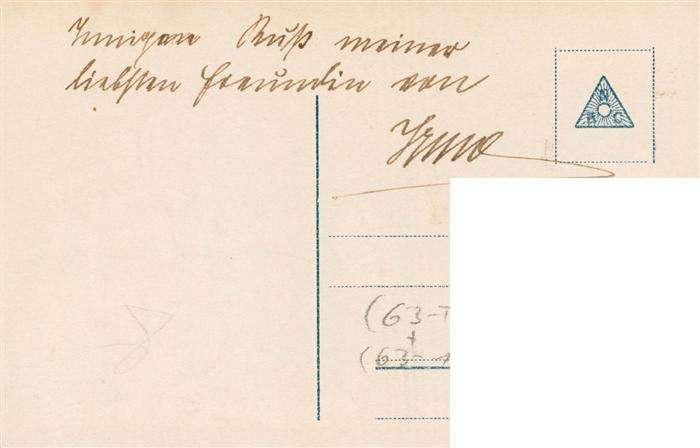 Innigen Kuß meiner
liebsten Freundin von
Irma
N
B G
(63-
+
(63-